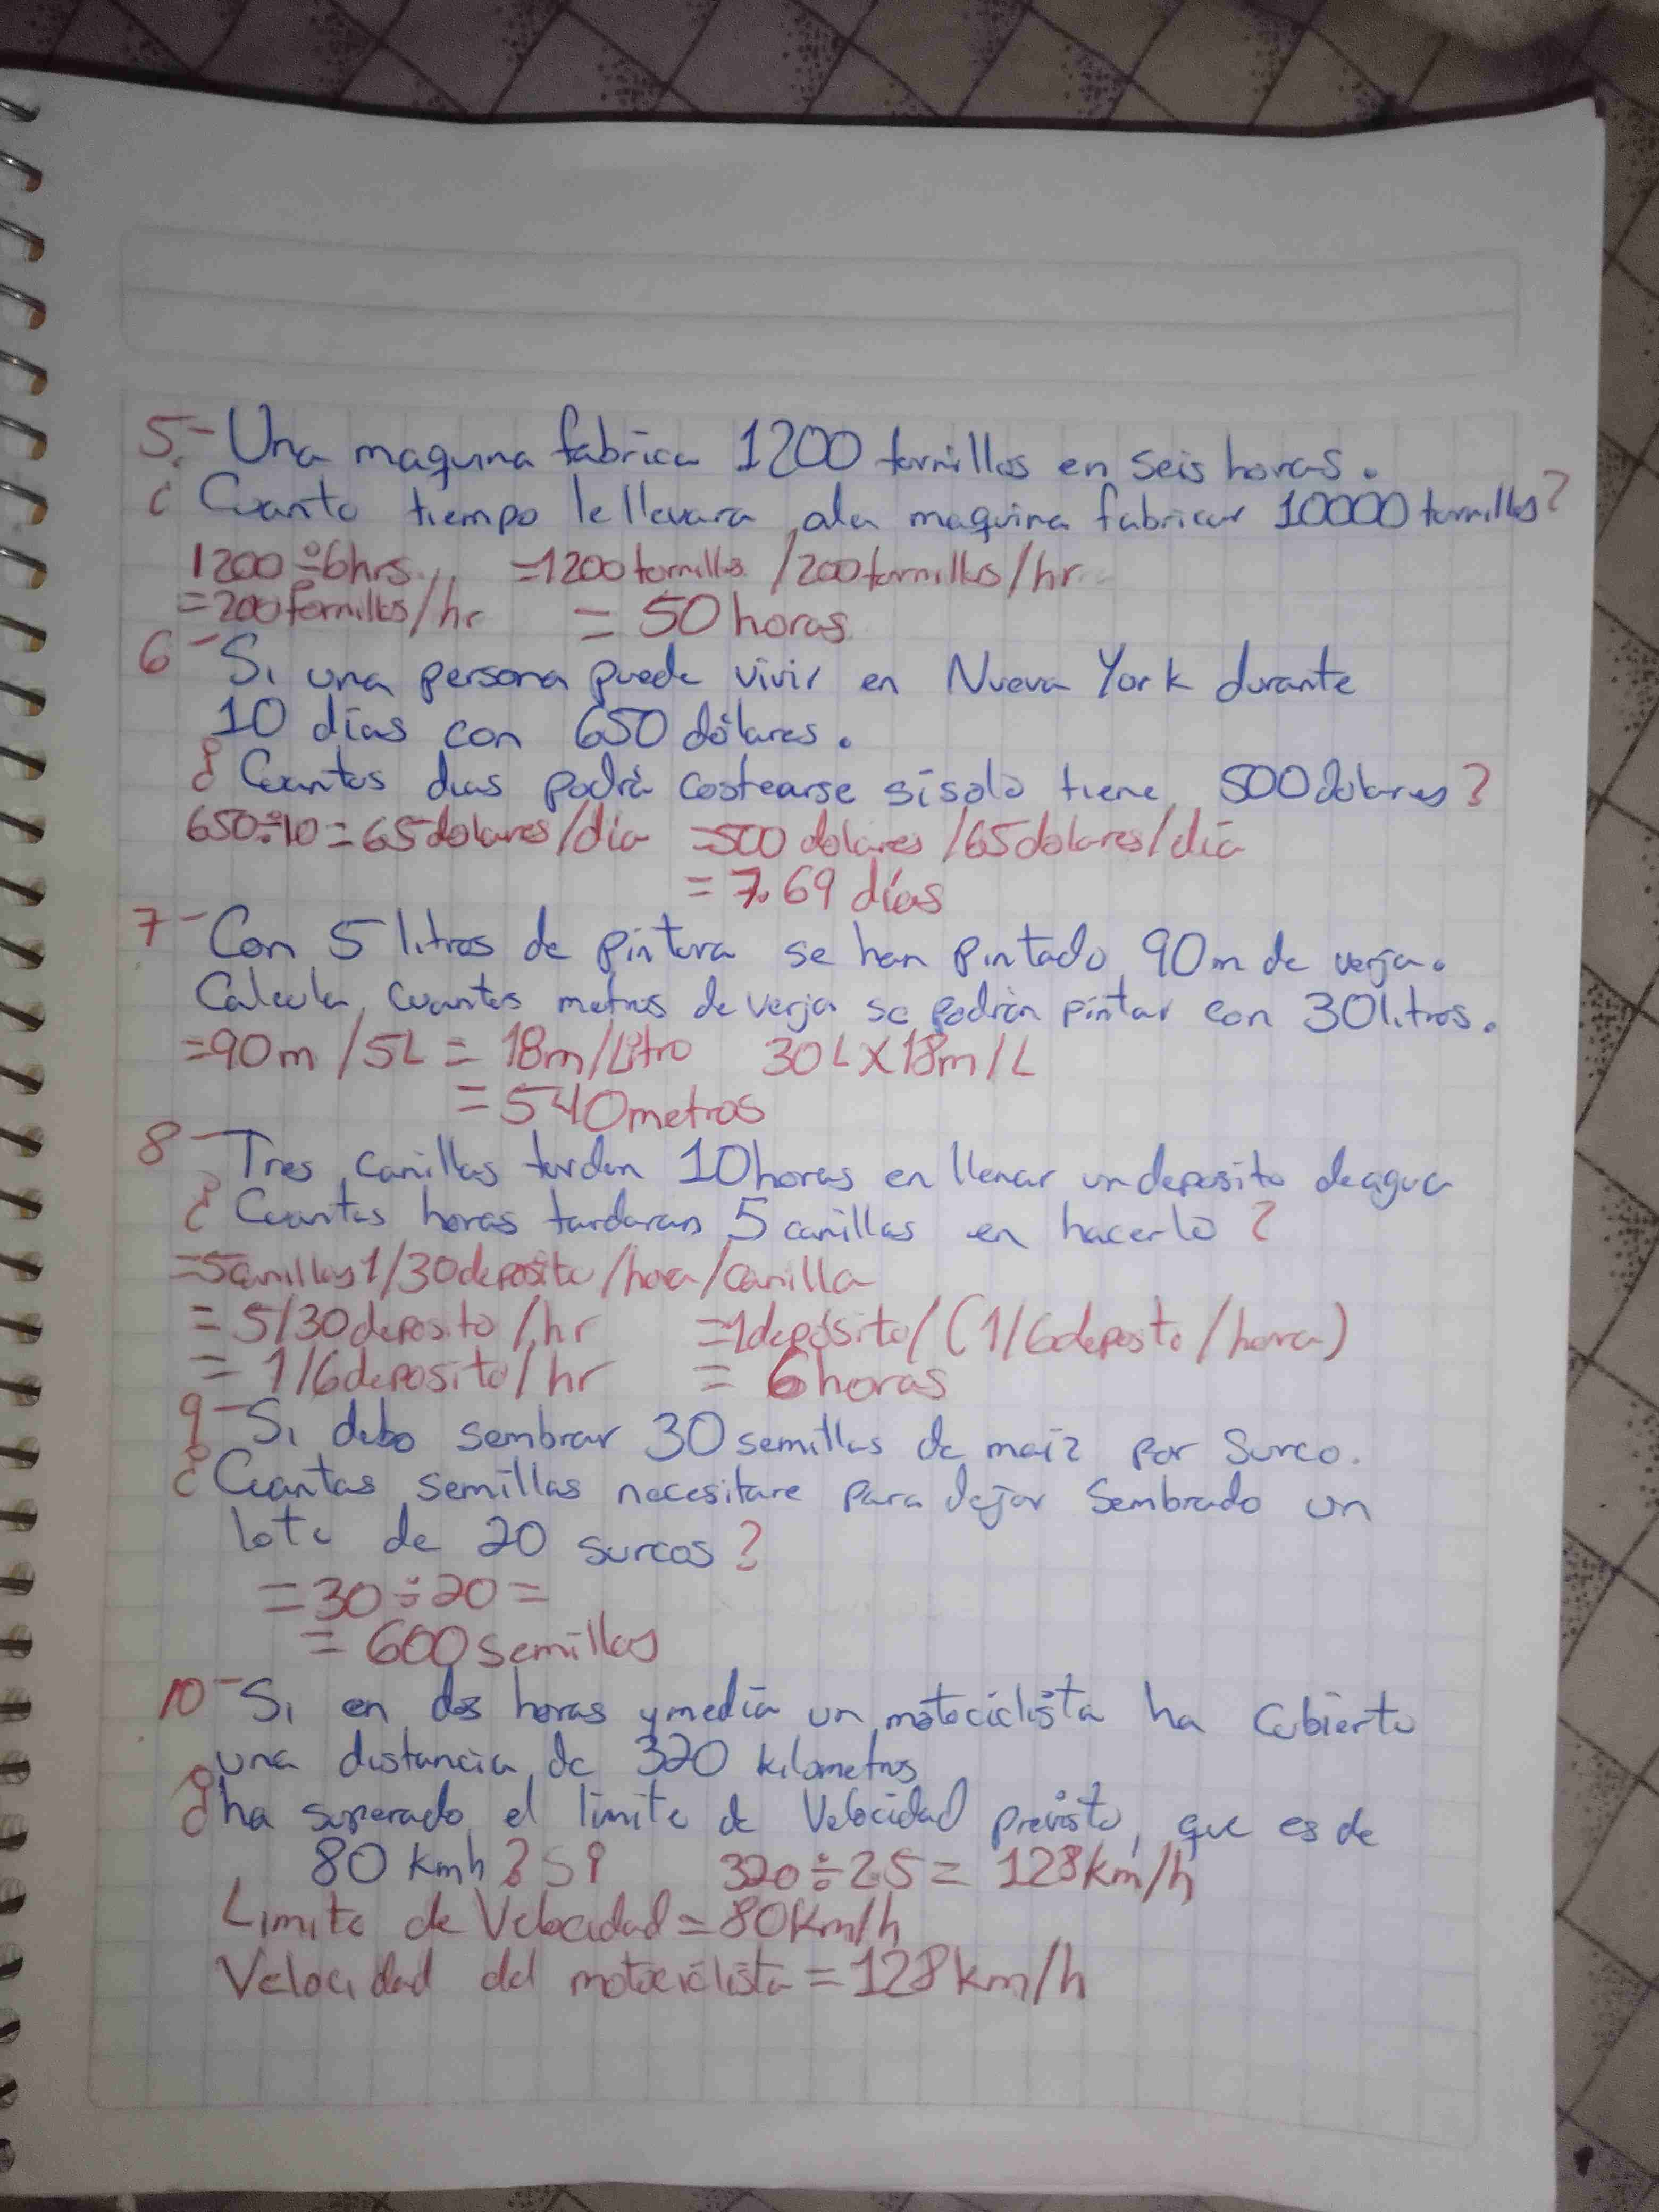 5- Una maquina fabrica 1200 tornillos en seis horas.
¿ Cuanto tiempo le llevara ala maquina fabricar 10000 tornillos?
1200÷6hrs =1200 tornillos /200 tornillos/hr
=200 tornillos/hr = 50 horas
6- Si una persona puede vivir en Nueva York durante
10 dias con 650 dólares.
¿ Cuantos dias podrá costearse si solo tiene 500 dolares?
650÷10=65 dolares/dia =500 dolares /65 dolares/dia
= 7.69 días
7- Con 5 litros de pintura se han pintado 90m de verja.
Calcula cuantos metros de verja se podrán pintar con 30 litros.
=90m /5L = 18m/Litro 30L X 18m/L
= 540 metros
8- Tres canillas tardan 10 horas en llenar un deposito de agua
¿ Cuantas horas tardaran 5 canillas en hacerlo?
=5canillas 1/30 deposito/hora/canilla
= 5/30 deposito/hr =1 depósito/(1/6 deposito/hora)
= 1/6 deposito/hr = 6 horas
9- Si debo sembrar 30 semillas de maiz por surco.
¿ Cuantas semillas necesitare para dejar sembrado un
lote de 20 surcos?
=30÷20=
= 600 semillas
10- Si en dos horas y media un motociclista ha cubierto
una distancia de 320 kilometros
¿ha superado el limite de velocidad previsto, que es de
80 kmh? Si 320÷2.5= 128km/h
Limite de Velocidad = 80Km/h
Velocidad del motociclista = 128km/h